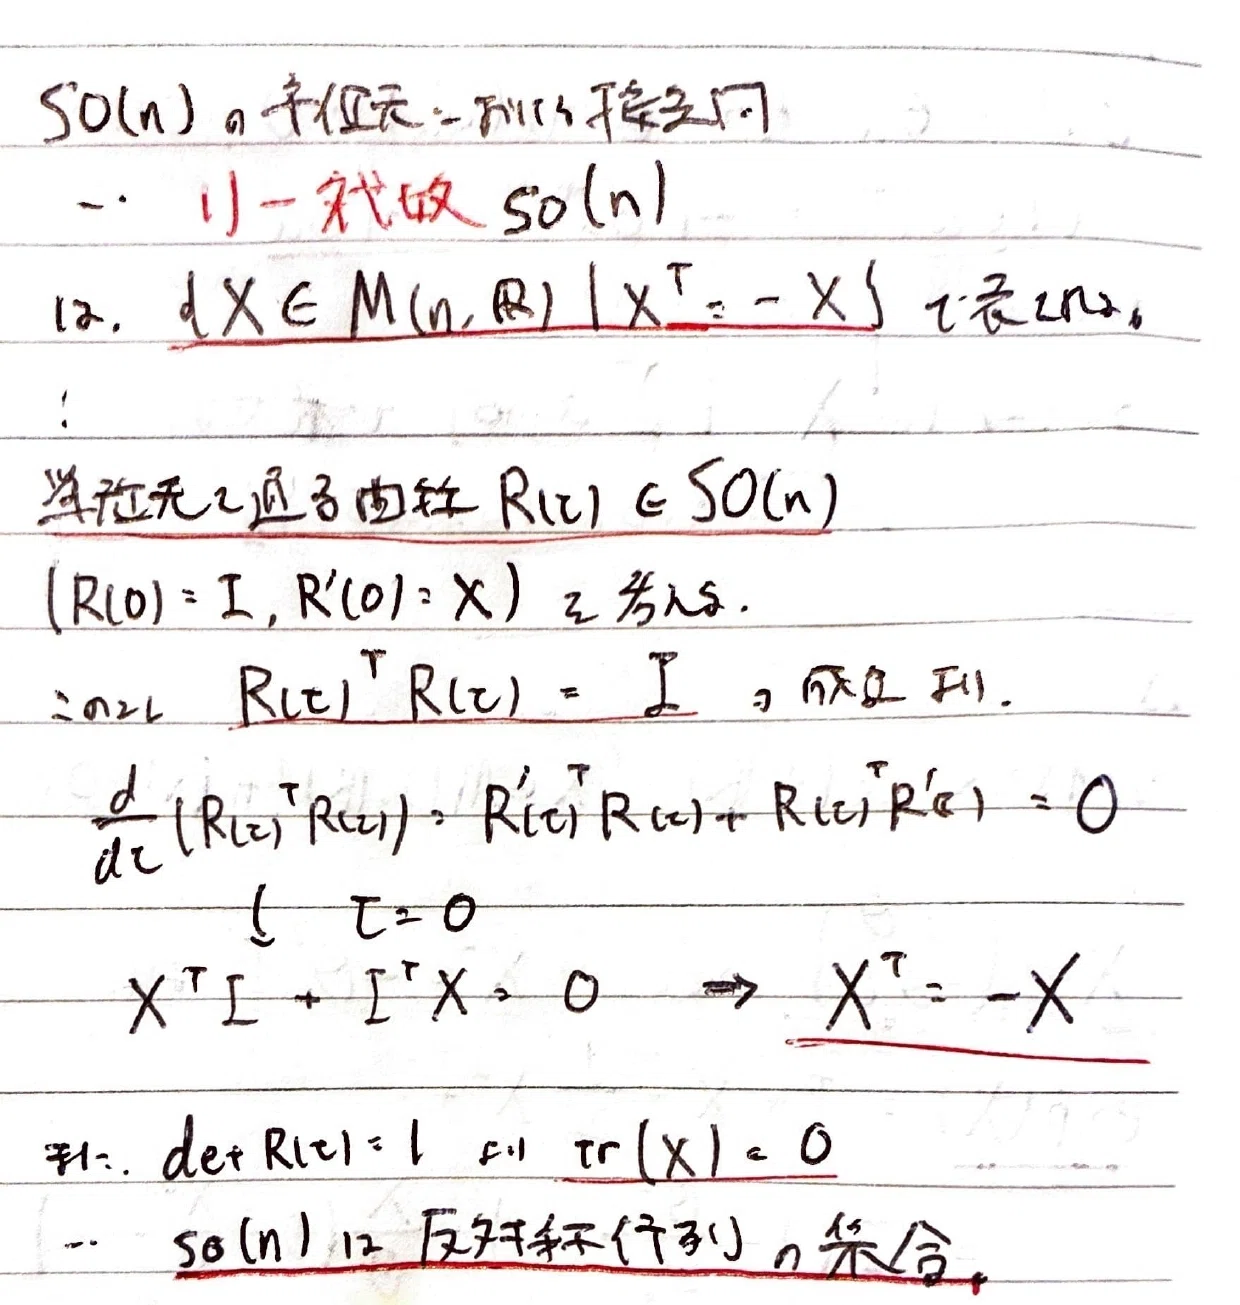 SO(n) の単位元における接空間
… リー代数 so(n)
は、{X ∈ M(n, ℝ) | X^T = -X} で表される。
⋮
単位元を通る曲線 R(τ) ∈ SO(n)
(R(0) = I, R'(0) = X) を考える.
このとき R(τ)^T R(τ) = I の成立より.
d/dτ (R(τ)^T R(τ)) = R'(τ)^T R(τ) + R(τ)^T R'(τ) = 0
↓ τ = 0
X^T I + I^T X = 0 ⇒ X^T = -X
また. det R(τ) = 1 より tr(X) = 0
… so(n) は 反対称行列の集合。